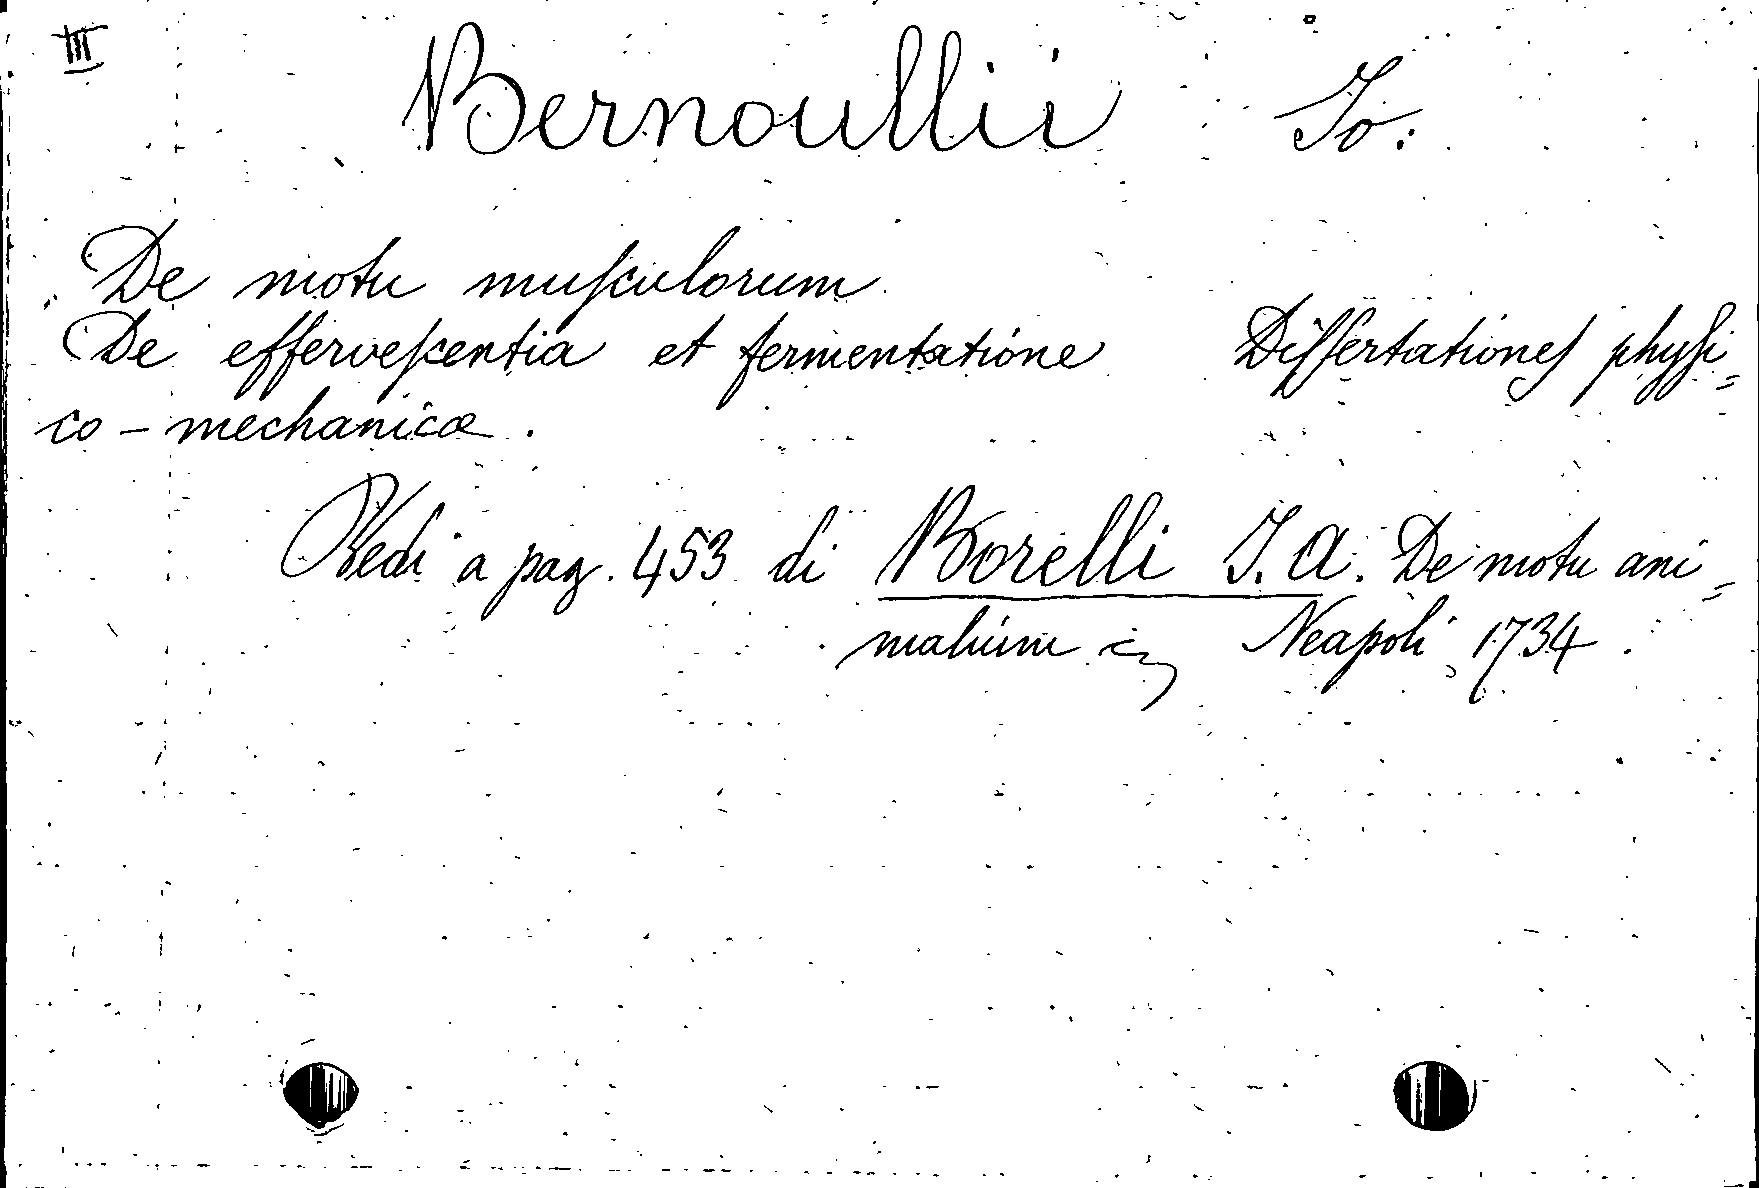 III
Bernoullii Jo:
De motu muſculorum
De efferveſcentia et fermentatione Diſſertationeſ phyſi=
co-mechanicæ.
Vedi a pag. 453 di Borelli J. A. De motu ani=
malium Neapoli 1734.